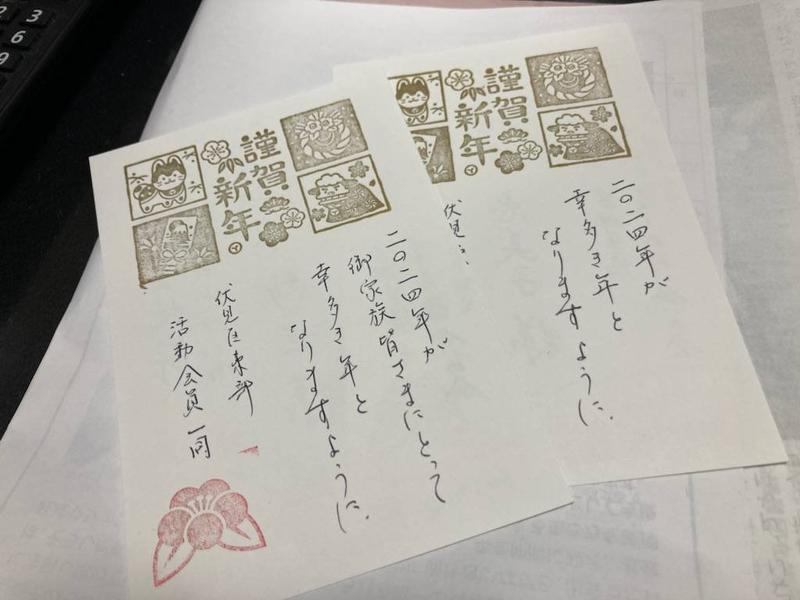 謹賀
新年
二〇二四年が
御家族皆さまにとって
幸多き年と
なりますように.
伏見区東部
活動会員一同
謹賀
新年
二〇二四年が
幸多き年と
なりますように.
伏見
3
6
9